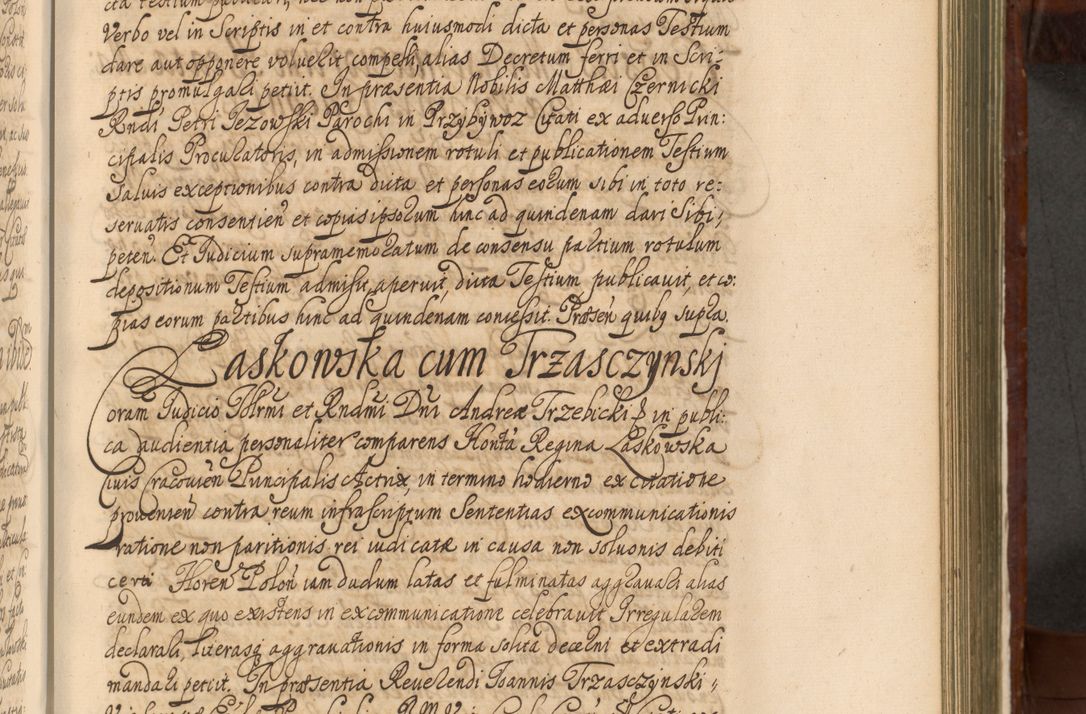 Verbo vel in Scriptis in et contra huiusmodi dicta et personas Testium
dare aut opponere voluerit, compelli, alias Decretum ferri et in Scri-
ptis promulgari petiit. In præsentia Nobilis Matthæi Czernicki
Rndi Petri Jezowski Parochi in Przybywoz Citati ex adverso Prin:
cipalis Procuratoris, in admissionem rotuli et publicationem Testium
salvis exceptionibus contra dicta et personas eorum sibi in toto re:
servatis consentien et copias ipsorum hinc ad quindenam dari sibi,
peten. Et Judicium supramemoratum de consensu partium rotulum
depositionum Testium admisit, aperuit, dicta Testium publicavit, et co:
pias eorum partibus hinc ad quindenam concessit. Præsen quibq supra.
Laskowska cum Trzasczynskj
Coram Judicio Illrmi et Rndmi Dni Andreæ Trzebicki in publi:
ca audientia personaliter comparens Honta Regina Laskowska
Civis Cracovien Principalis Actrix, in termino hodierno ex citatione
provenien contra reum infrascriptum Sententias excommunicationis
ratione non paritionis rei iudicatæ in causa non solvonis debiti
certi Floren Polon iamdudum latas et fulminatas aggravari alias
eundem ex quo existens in excommunicatione celebravit Irregularem
declarari, literasq aggravationis in forma solita decerni et extradi
mandari petiit. In præsentia Reverendi Joannis Trzasczynski